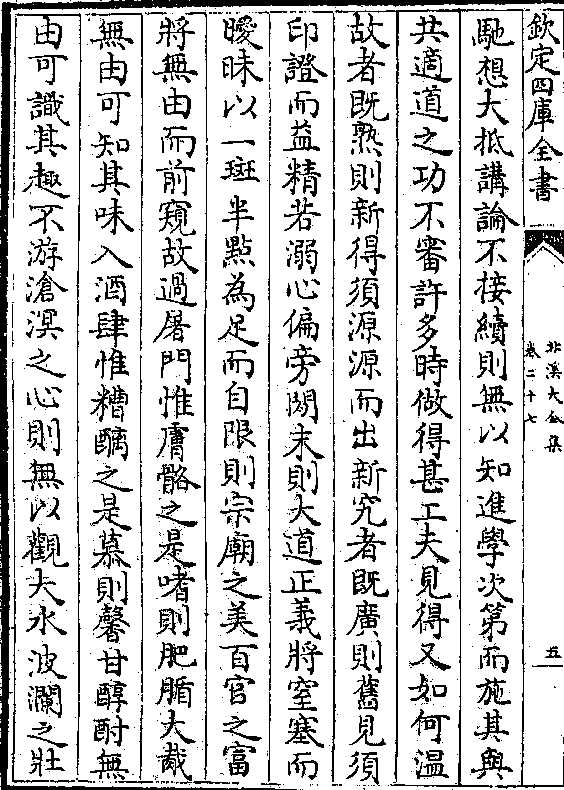 欽定四庫全書
北溪大全集
卷二十七
五
馳想大抵講論不接續則無以知進學次第而施其與
共適道之功不審許多時做得甚工夫見得又如何温
故者既熟則新得須源源而出新究者既廣則舊見須
印證而益精若溺心偏旁閒末則大道正義將窒塞而
曖昧以一斑半點為足而自限則宗廟之美百官之富
將無由而前窺故過屠門惟膚骼之是嗜則肥腯大胾
無由可知其味入酒肆惟糟醨之是慕則馨甘醇酎無
由可識其趣不游滄溟之心則無以觀大水波瀾之壯